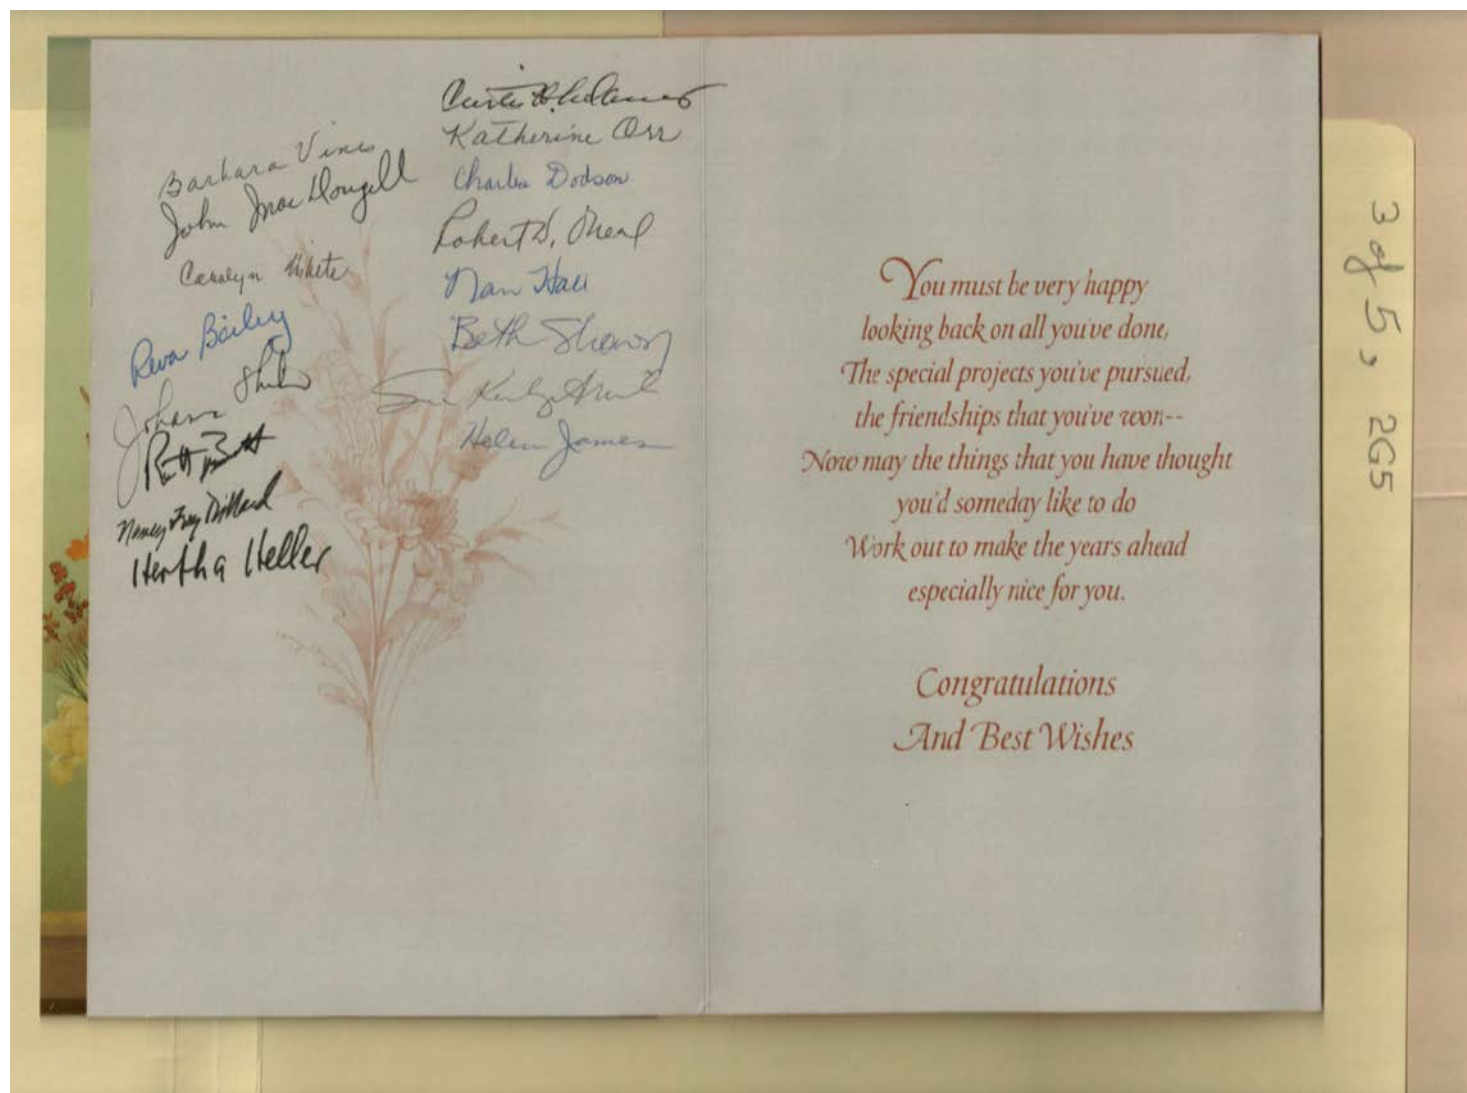 Barbara Vines
John MacDougall
Carolyn White
Reva Bailey
Johann
Nancy Frey Dillard
Hertha Heller
Curtis
Katherine Orr
Charles Dodson
Robert W. Neal
Nan Hall
Beth
Sue
Helen James
You must be very happy
looking back on all you've done,
The special projects you've pursued,
the friendships that you've won--
Now may the things that you have thought
you'd someday like to do
Work out to make the years ahead
especially nice for you.
Congratulations
And Best Wishes
3 of 5, 2G5